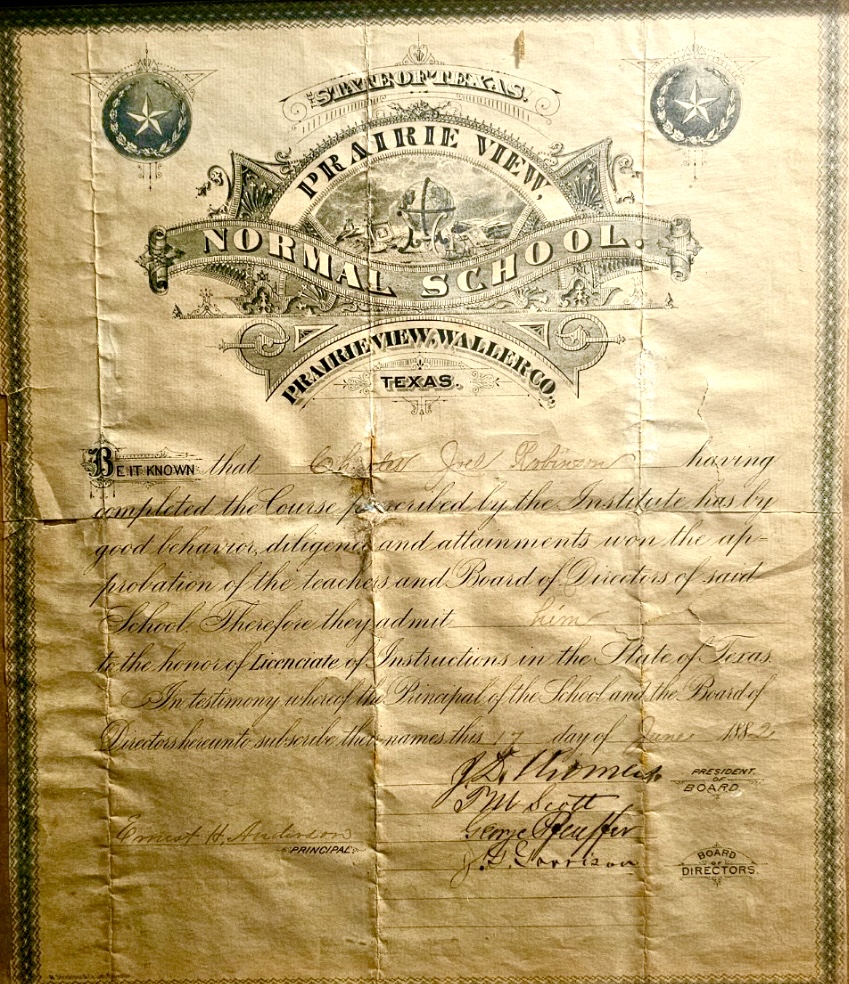 STATE OF TEXAS.
PRAIRIE VIEW,
NORMAL SCHOOL.
PRAIRIE VIEW, WALLER CO.,
TEXAS.
BE IT KNOWN that Charles Joel Robinson having
completed the Course prescribed by the Institute has by
good behavior, diligence and attainments won the ap-
probation of the teachers and Board of Directors of said
School. Therefore they admit him
to the honor of Licenciate of Instructions in the State of Texas.
In testimony whereof the Principal of the School and the Board of
Directors hereunto subscribe their names this 17 day of June 1882
J. D. PRESIDENT
OF
BOARD.
T. M. Scott
Ernest H. Anderson George Pfeuffer
PRINCIPAL.
J. G. Garrison BOARD
OF
DIRECTORS.